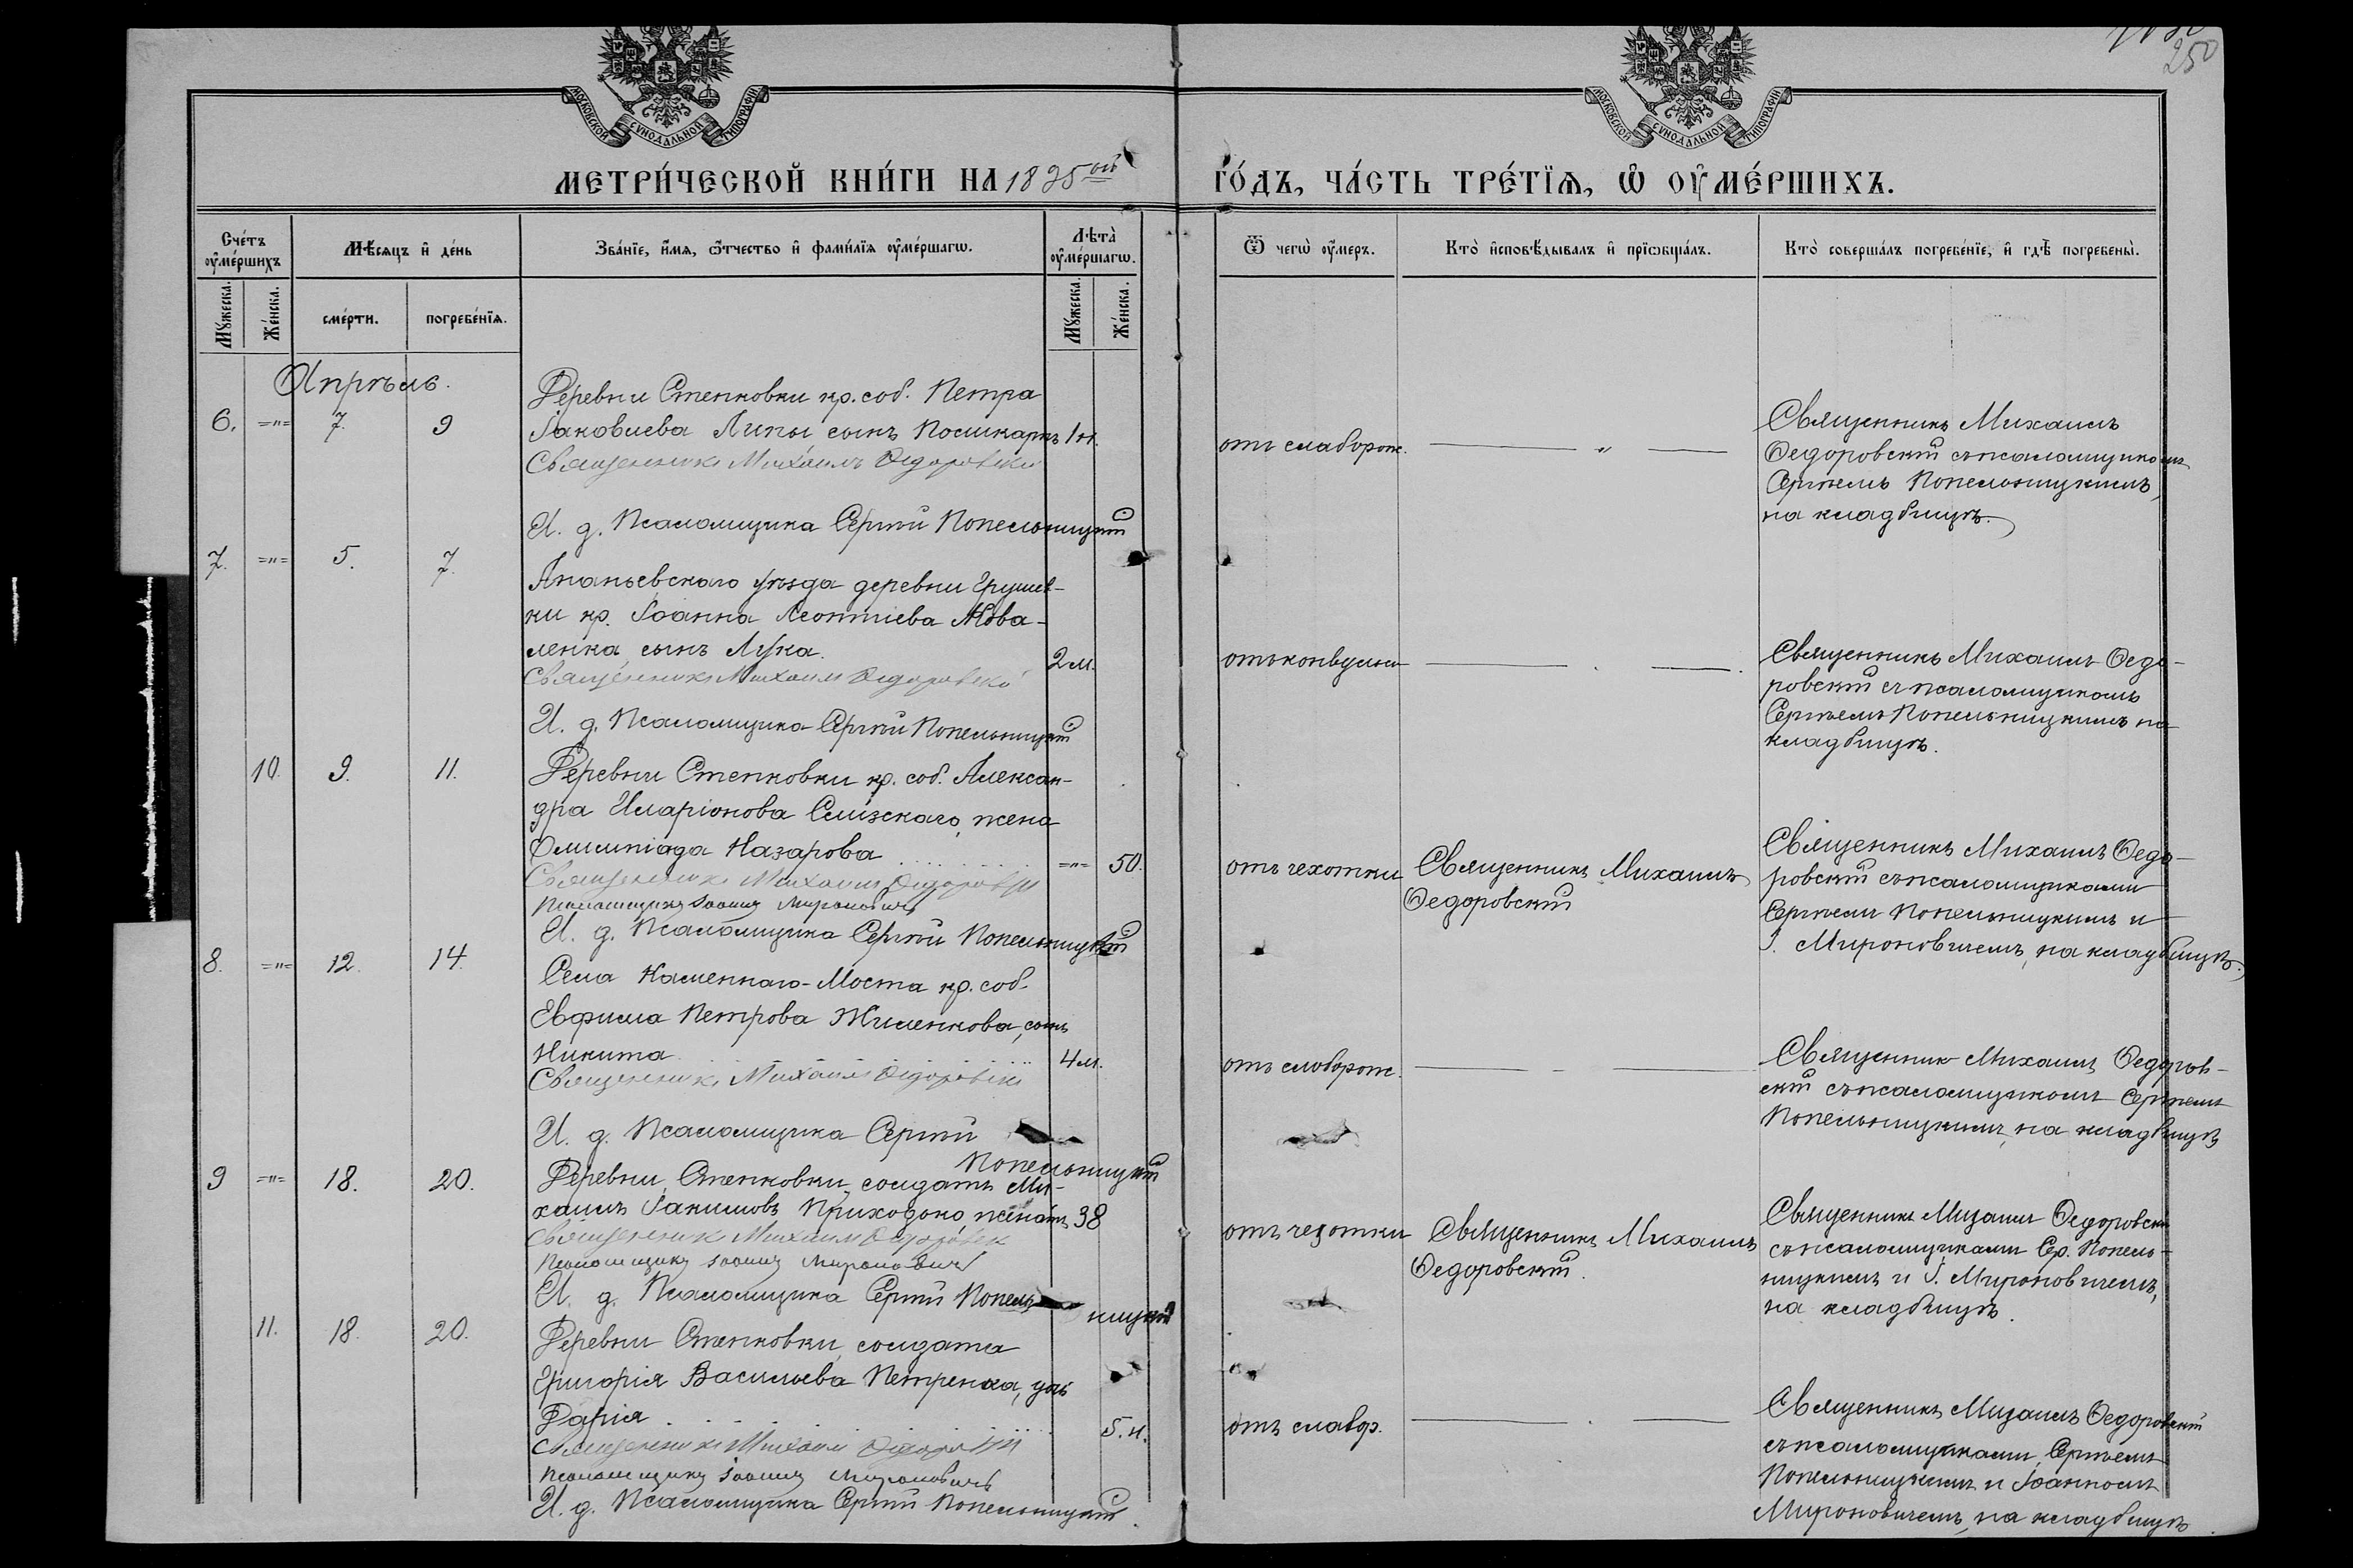 250
МОСКОВСКОЙ СУНОДАЛЬНОЙ ТИПОГРАФІИ
МОСКОВСКОЙ СУНОДАЛЬНОЙ ТИПОГРАФІИ
МЕТРИ́ЧЕСКОЙ КНИ́ГИ НА 1895ый
ГО́ДЪ, ЧА́СТЬ ТРЕ́ТЇѦ, Ѡ ОУМЕ́РШИХЪ.
Сче́тъ оуме́ршихъ
Мѣсяцъ и де́нь
Зва́нїе, и́мя, ѻ́тчество и фами́лїя оуме́ршагѡ.
Лѣта̀ оуме́ршагѡ.
Ѿ чегѡ̀ оу́меръ.
Кто̀ и҆сповѣ́дывалъ и прїѡбща́лъ.
Кто̀ соверша́лъ погребе́нїе, и гдѣ̀ погребены̀.
Му́жеска.
Же́нска.
сме́рти.
погребе́нїя.
Му́жеска.
Же́нска.
Апрѣль.
6. =„= 7. 9
Деревни Степковки кр. соб. Петра
Іаковлева Липы сынъ Поликарпъ 1 н.
Священникъ Михаилъ Ѳедоровскій
И. д. Псаломщика Сергій Попельницкій
отъ слаборож. — „ —
Священникъ Михаилъ
Ѳедоровскій съ псаломщикомъ
Сергіемъ Попельницкимъ,
на кладбищѣ.
7. =„= 5. 7.
Ананьевскаго уѣзда деревни Грушев-
ки кр. Іоанна Леонтіева Кова-
ленка сынъ Лука. 2 м.
Священникъ Михаилъ Ѳедоровскій
И. д. Псаломщика Сергій Попельницкій
отъ конвульси
Священникъ Михаилъ Ѳедо-
ровскій съ псаломщикомъ
Сергіемъ Попельницкимъ на
кладбищѣ.
10. 9. 11.
Деревни Степковки кр. соб. Алексан-
дра Иларіонова жена
Олимпіада Назарова =„= 50.
Священникъ Михаилъ Ѳедоровскій
Псаломщикъ Іоаннъ Мироновичъ
И. д. Псаломщика Сергій Попельницкій
отъ чехотки
Священникъ Михаилъ
Ѳедоровскій
Священникъ Михаилъ Ѳедо-
ровскій съ псаломщиками
Сергіемъ Попельницкимъ и
І. Мироновичемъ, на кладбищѣ.
8. =„= 12. 14.
Села Каменнаго-Моста кр. соб.
Евфима Петрова Жиленкова, сынъ
Никита 4 м.
Священникъ Михаилъ Ѳедоровскій
И. д. Псаломщика Сергій
Попельницкій
отъ слаборож.
Священник Михаилъ Ѳедоров-
скій съ псаломщикомъ Сергіемъ
Попельницкимъ, на кладбищѣ
9 =„= 18. 20.
Деревни Степковки солдатъ Ми-
хаилъ Іакимовъ Приходько, женатъ 38
Священникъ Михаилъ Ѳедоровскій
Псаломщикъ Іоаннъ Мироновичъ
И. д. Псаломщика Сергій Попель
ницкій
отъ чехотки
Священникъ Михаилъ
Ѳедоровскій.
Священникъ Михаилъ Ѳедоровскій
съ псаломщиками Сер. Попель-
ницкимъ и І. Мироновичемъ,
на кладбищѣ.
11. 18. 20.
Деревни Степковки, солдата
Григорія Васильева Петренка, дочь
Дарія 5. н.
Священникъ Михаилъ Ѳедоровскій
Псаломщикъ Іоаннъ Мироновичъ
И. д. Псаломщика Сергій Попельницкій.
отъ слабор.
Священникъ Михаилъ Ѳедоровскій
съ псаломщиками, Сергіемъ
Попельницкимъ и Іоанномъ
Мироновичемъ, на кладбищѣ.